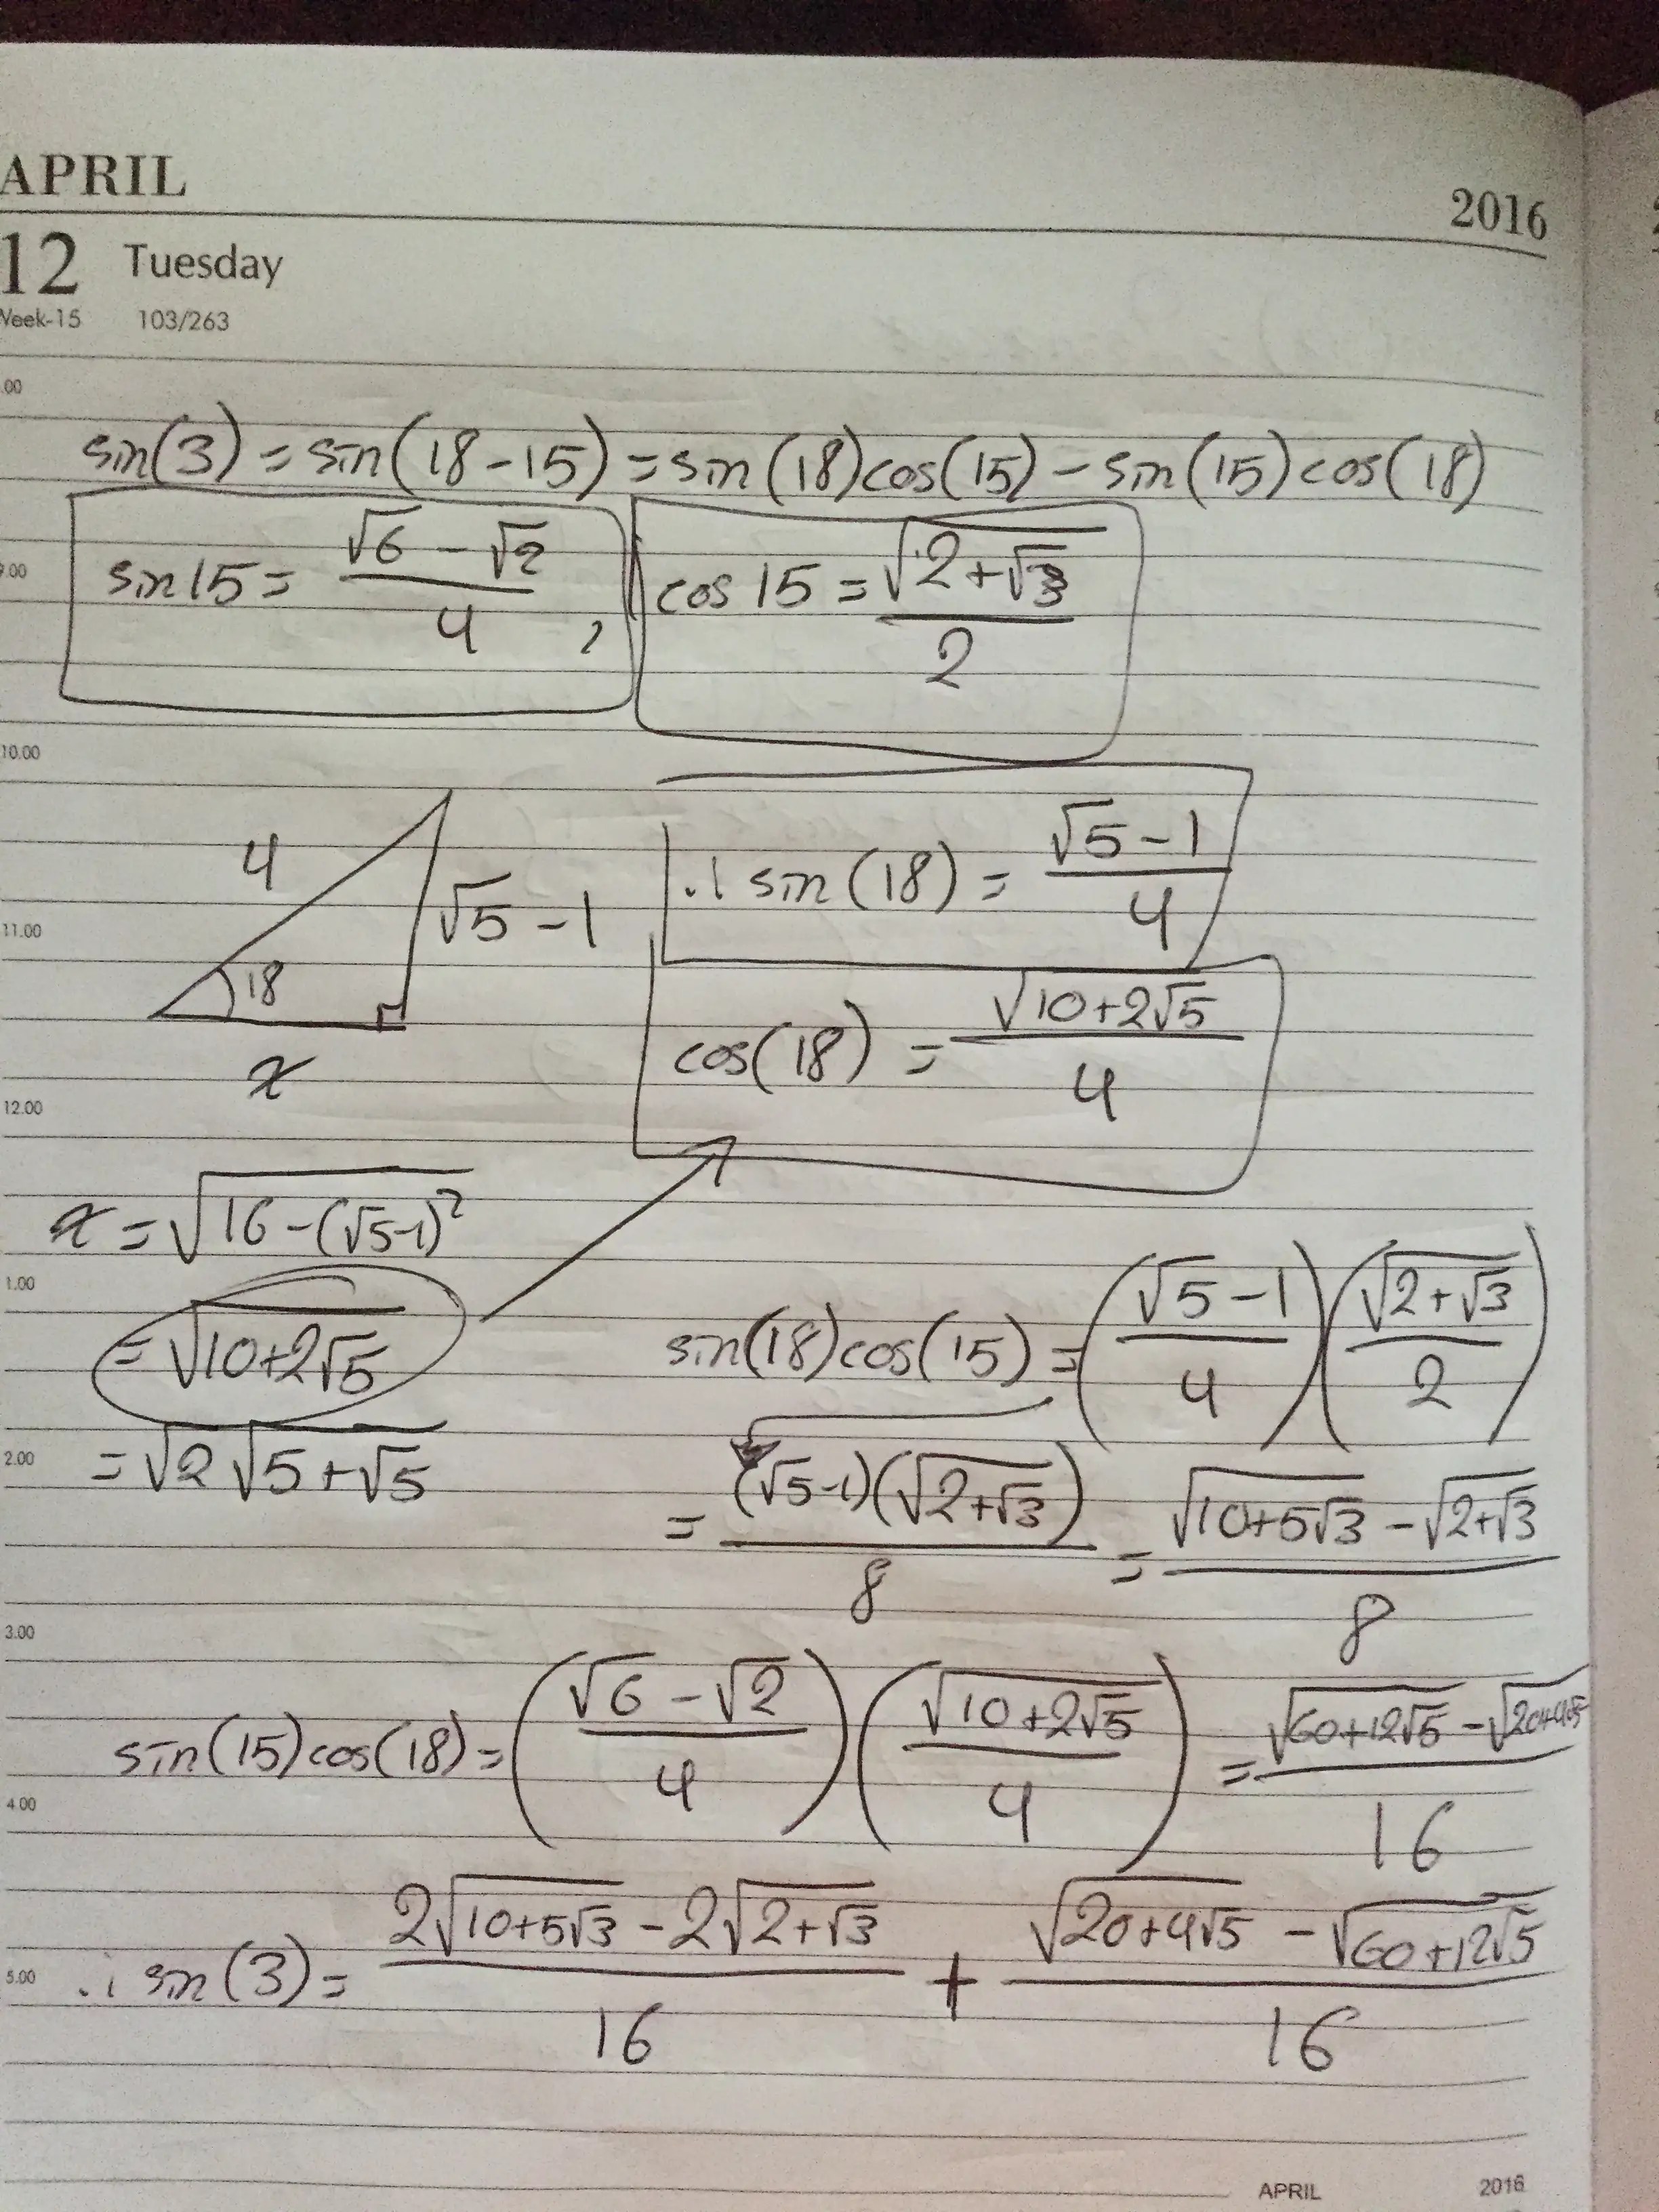 APRIL
2016
12 Tuesday
Week-15 103/263
.00
sin(3) = sin(18-15) = sin(18)cos(15) - sin(15)cos(18)
9.00
sin15 = √6 - √2 / 4 , cos 15 = √(2+√3) / 2
10.00
4
√5 - 1
18
x
∴ sin(18) = √5 - 1 / 4
11.00
cos(18) = √(10+2√5) / 4
12.00
x = √(16-(√5-1)²)
1.00
= √(10+2√5)
sin(18)cos(15) = (√5 - 1 / 4)(√(2+√3) / 2)
2.00
= √2 √(5+√5)
= (√5-1)(√(2+√3)) / 8 = √(10+5√3) - √(2+√3) / 8
3.00
sin(15)cos(18) = (√6 - √2 / 4)(√(10+2√5) / 4) = √(60+12√5) - √(20+4√5) / 16
4.00
5.00
∴ sin(3) = 2√(10+5√3) - 2√(2+√3) / 16 + √(20+4√5) - √(60+12√5) / 16
APRIL 2016